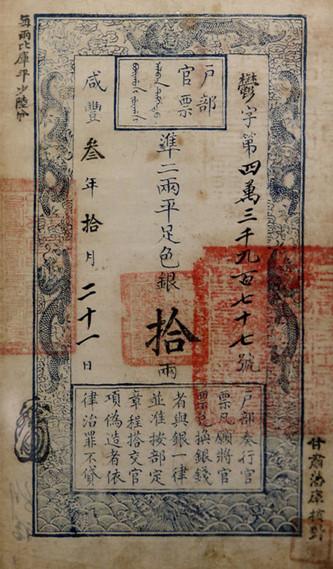 戶部
官票
鬱字第四萬三千九百七十七號
準二兩平足色銀拾兩
咸豐叁年拾月二十一日
戶部奏行官
票凡願將官
票兌換銀錢
者與銀一律
並准按部定
章程搭交官
項偽造者依
律治罪不貸
每兩比庫平少陸分
甘肅藩庫